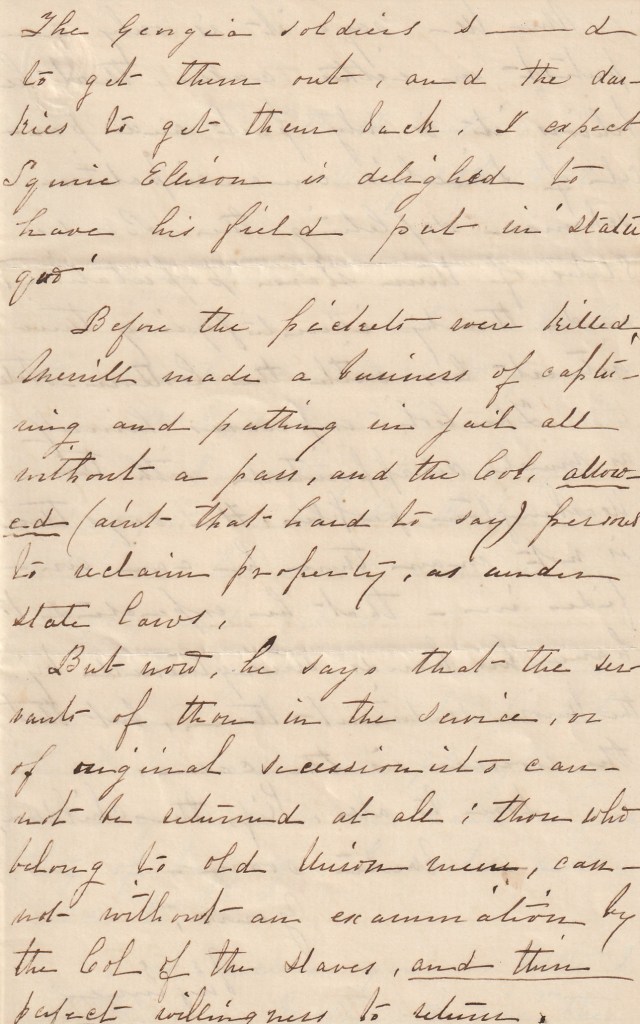 The Georgia soldiers s——d
to get them out, and the dar-
kies to get them back. I expect
Squire Ellison is delighted to
have his field put in 'statu
quo'
Before the pickets were killed,
Merrill made a business of captu-
ring and putting in jail all
without a pass, and the Col. allow-
ed (aint that hard to say) persons
to reclaim property, as under
state laws.
But now, he says that the ser-
vants of those in the service, or
of original secessionists can-
not be returned at all; those who
belong to old Union men, can-
not without an examination by
the Col of the slaves, and their
perfect willingness to return.